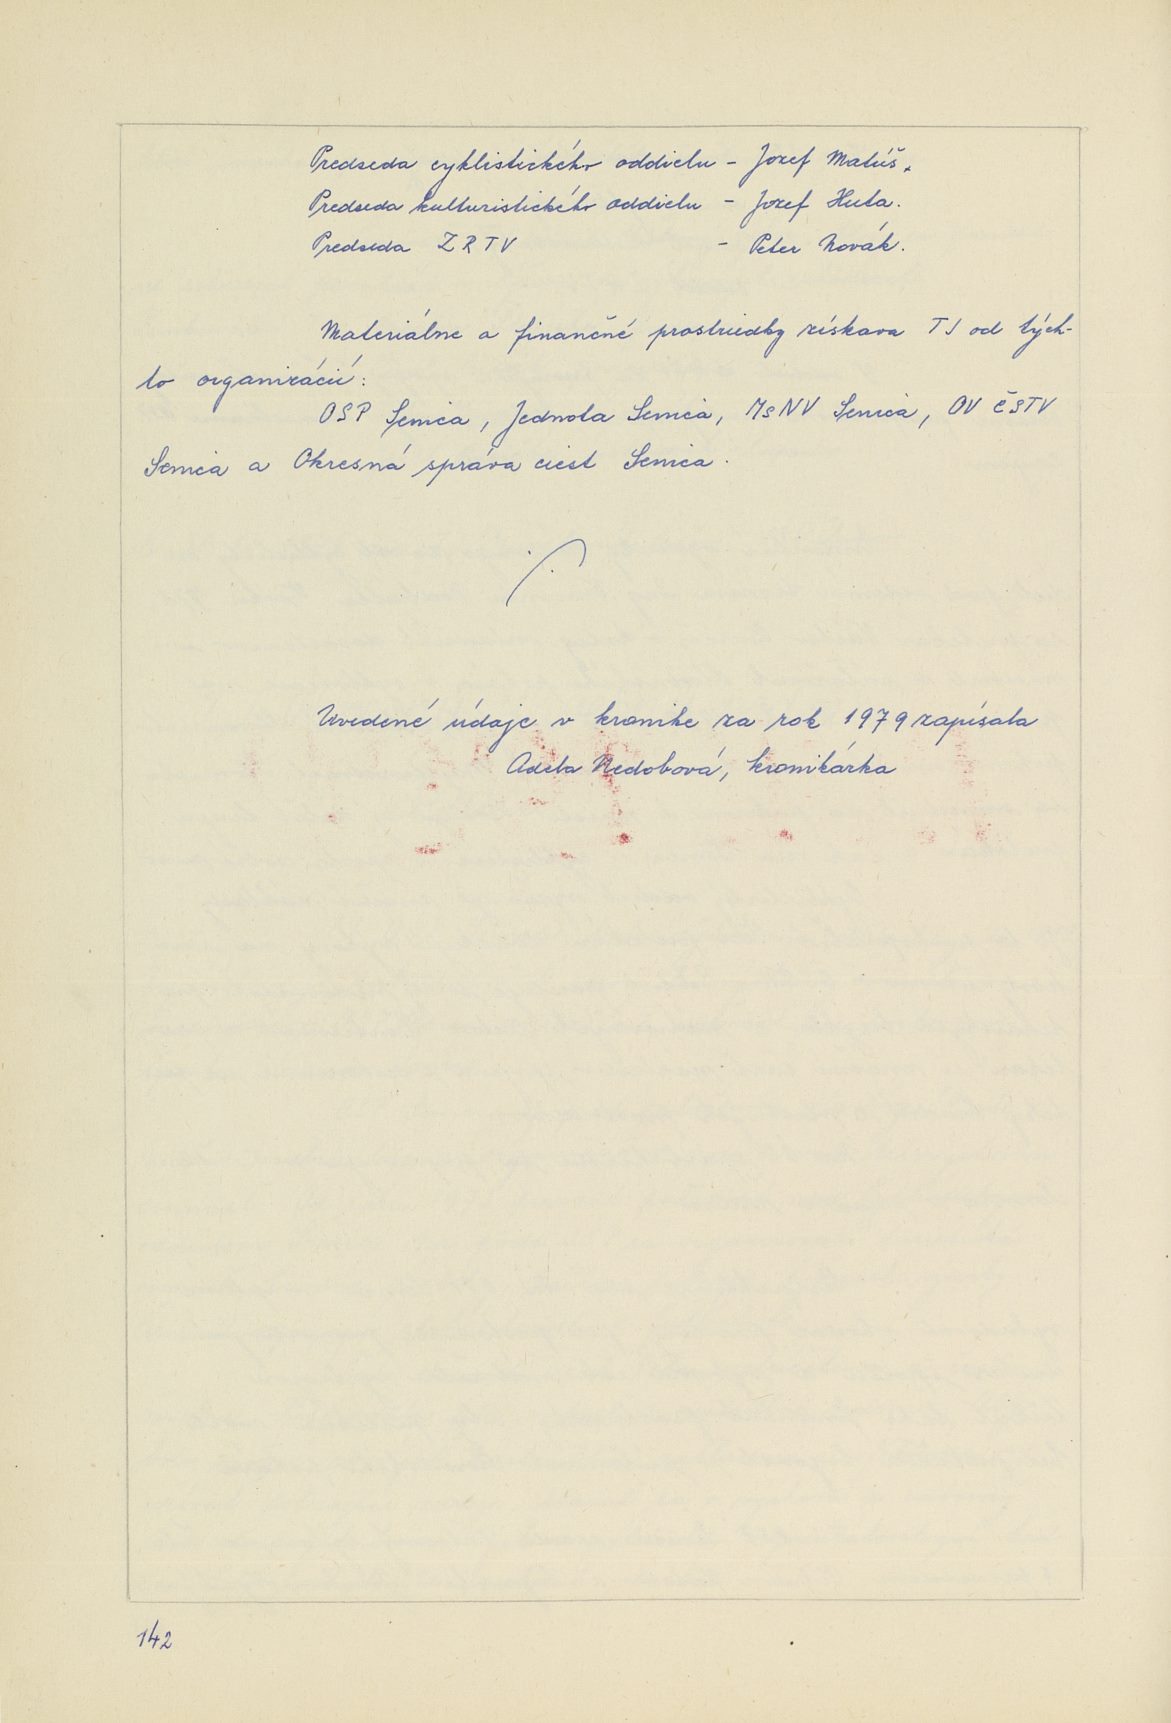 Predseda cyklistického oddielu - Jozef Matúš.
Predseda kulturistického oddielu - Jozef Huta.
Predseda ZRTV - Peter Novák.
Materiálne a finančné prostriedky získava TJ od tých-
to organizácií:
OSP Senica, Jednota Senica, MsNV Senica, OV ČSTV
Senica a Okresná správa ciest Senica.
Uvedené údaje v kronike za rok 1979 zapísala
Adela Nedobová, kronikárka
142